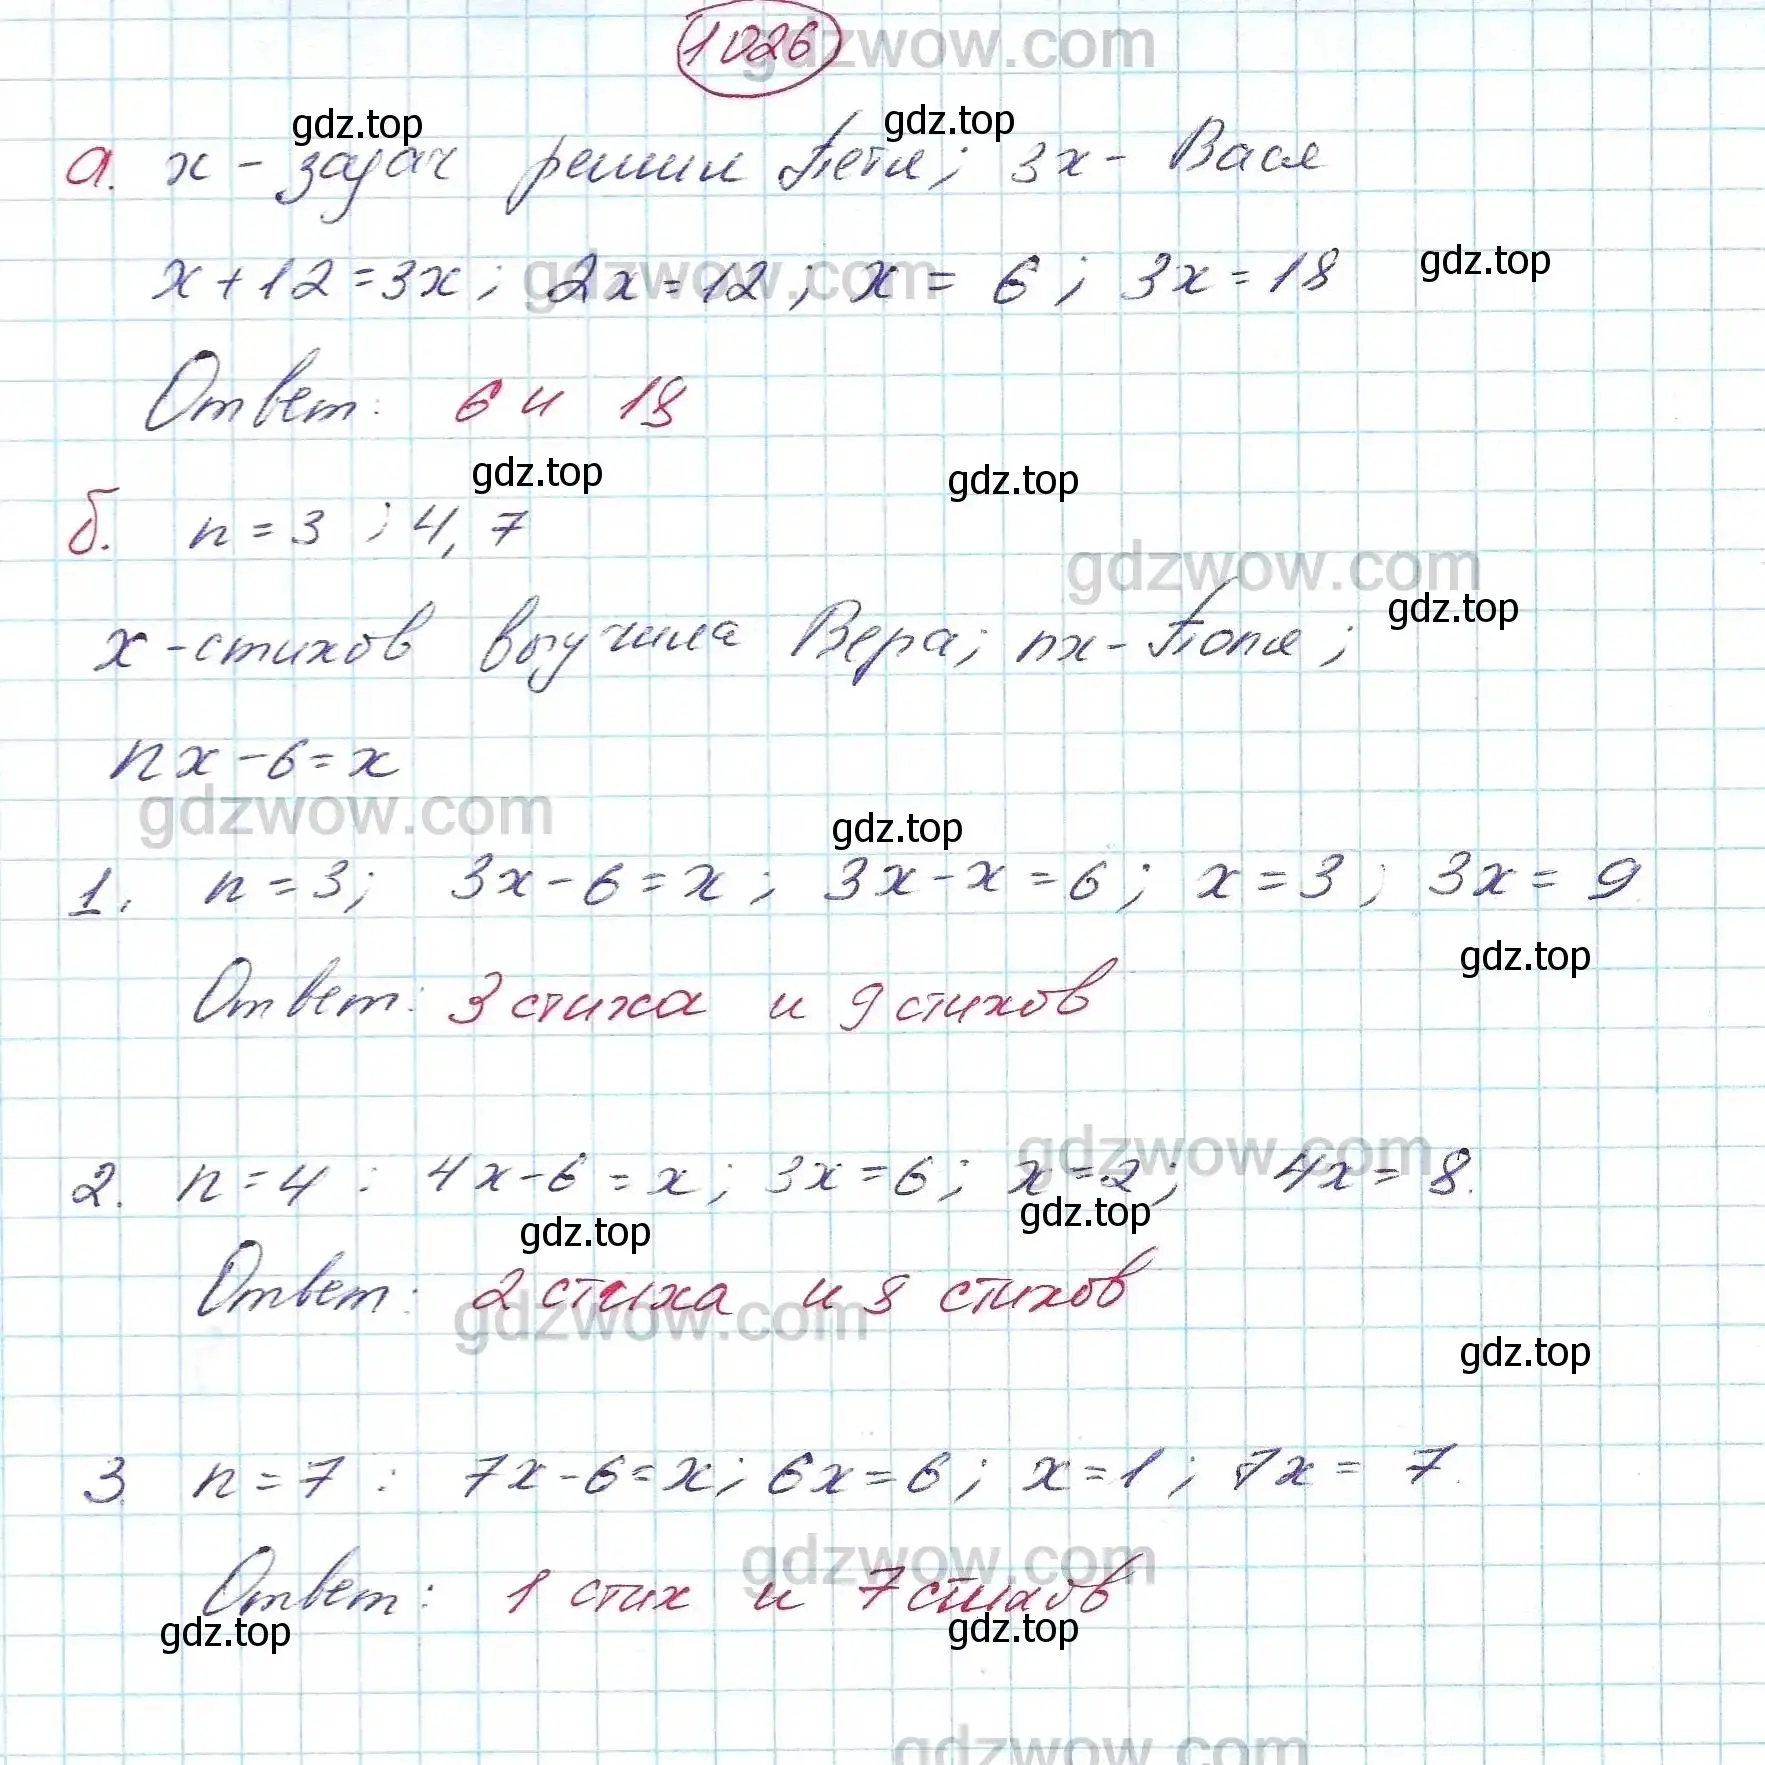 1026 gdzwow.com
gdz.top gdz.top
а. x - задач решил Петя; 3x - Вася
x + 12 = 3x; 2x = 12; x = 6; 3x = 18 gdz.top
gdzwow.com
Ответ: 6 и 18
gdz.top gdz.top
б. n = 3; 4, 7
gdzwow.com
gdz.top
x - стихов выучила Вера; nx - Поля;
nx - 6 = x
gdzwow.com gdz.top
1. n = 3; 3x - 6 = x; 3x - x = 6; x = 3; 3x = 9
gdz.top
Ответ: 3 стиха и 9 стихов
gdzwow.com
2. n = 4: 4x - 6 = x; 3x = 6; x = 2; 4x = 8.
gdz.top gdz.top
Ответ: 2 стиха и 8 стихов
gdzwow.com
gdz.top
3. n = 7: 7x - 6 = x; 6x = 6; x = 1; 7x = 7.
gdzwow.com
Ответ: 1 стих и 7 стихов
gdz.top gdz.top
gdzwow.com